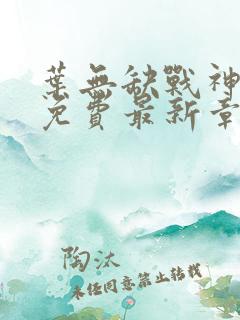 葉無缺戰神
免費最新章
陶汰
未任同意禁止转载